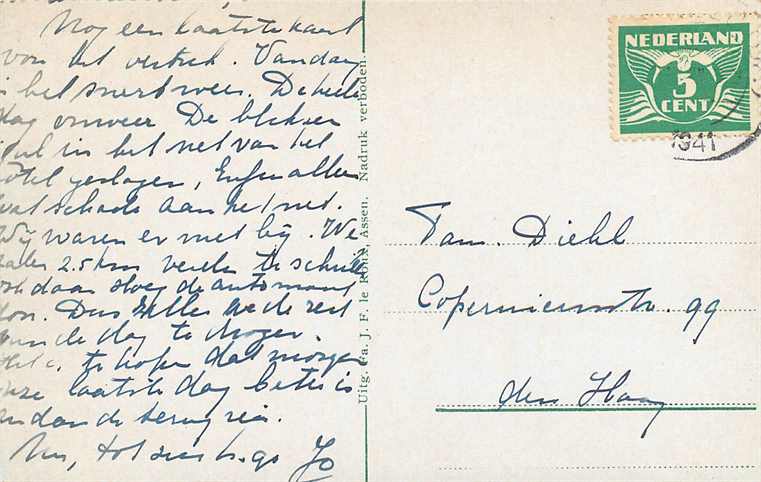 Nog een laatste kaart
voor het vertrek. Vandaag
is het snert weer. De hele
dag onweer De bliksem
in het net van het
hotel geslagen, Enfin alleen
wat schade aan het net.
Wij waren er niet bij. We
zaten 2.5 km verder te schuilen
ook daar sloeg de automaat
door. Dus de rest
van de dag te drogen.
te hopen dat morgen
onze laatste dag beter is
en dan de terug reis.
Nu, tot Jo
Uitg. Fa. J. F. le Roux, Assen. Nadruk verboden.
NEDERLAND
5
CENT
1941
Fam. Diehl
Copernicusstr. 99
den Haag